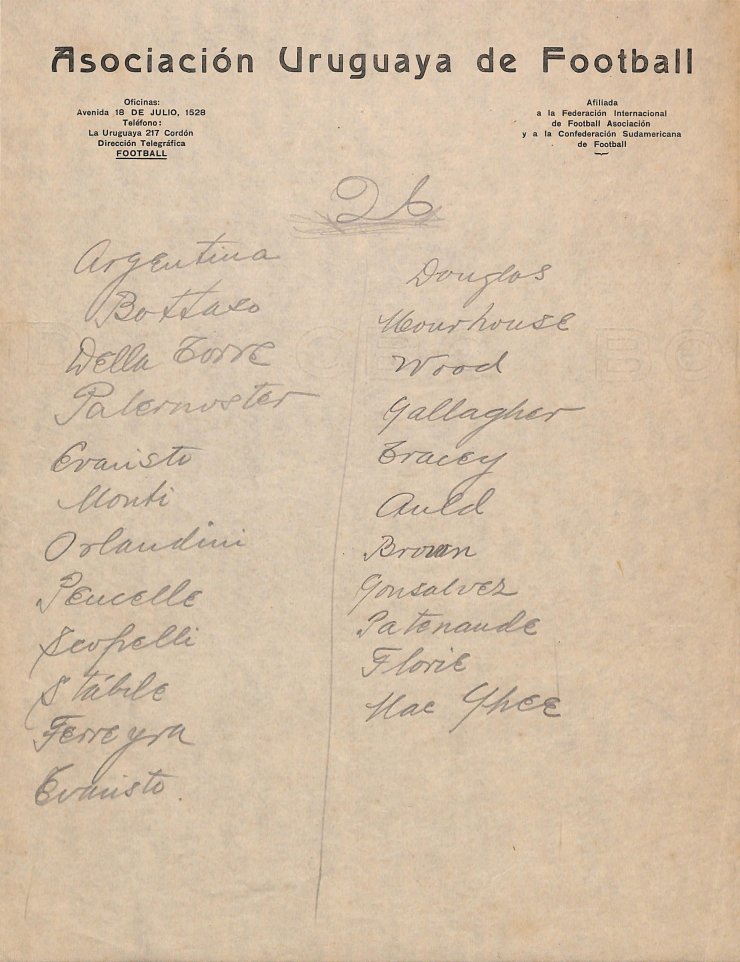 Asociación Uruguaya de Football
Oficinas:
Avenida 18 DE JULIO, 1528
Teléfono:
La Uruguaya 217 Cordón
Dirección Telegráfica
FOOTBALL
Afiliada
a la Federación Internacional
de Football Asociación
y a la Confederación Sudamericana
de Football
26
Argentina
Bottaso
Della Torre
Paternoster
Evaristo
Monti
Orlandini
Peucelle
Scopelli
Stábile
Ferreyra
Evaristo.
Douglas
Mourhouse
Wood
Gallagher
Tracey
Auld
Brown
Gonsalvez
Patenaude
Florie
Mac Ghee